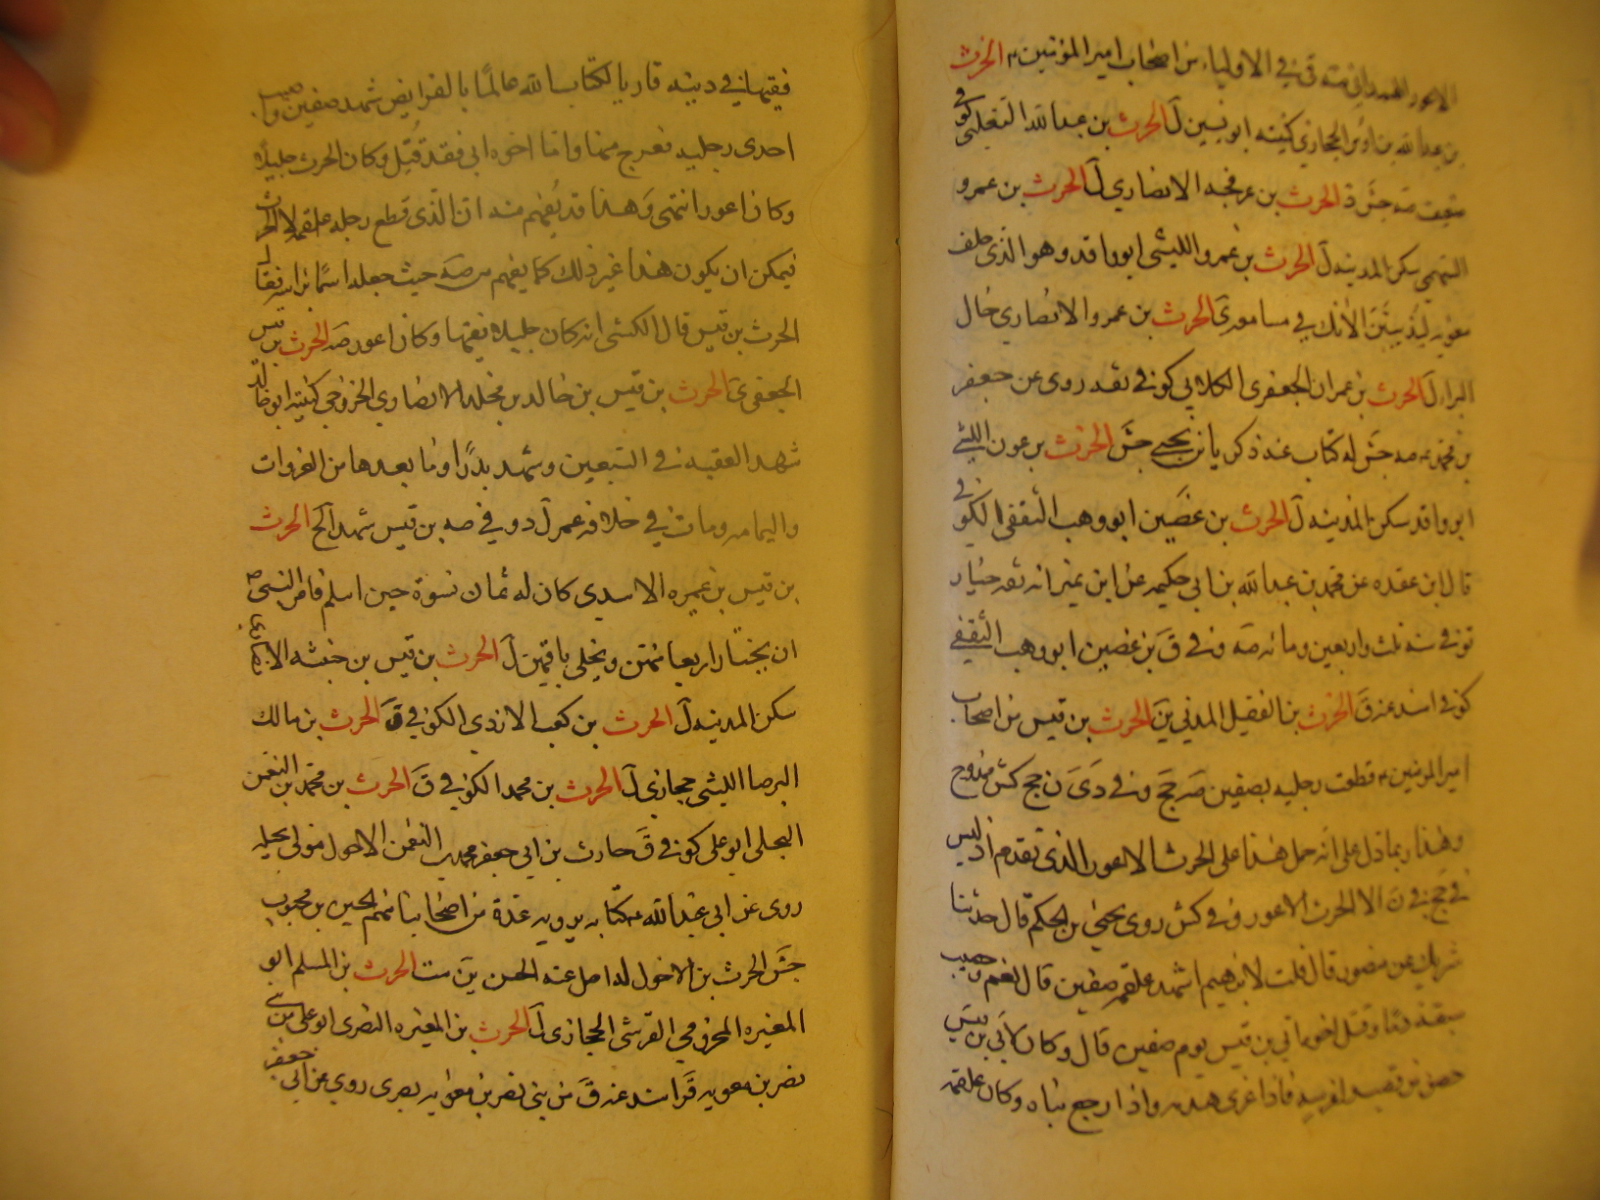 الاعور الهمداني صه قي في الاولياء من اصحاب امير المؤمنين م الحرث
بن عبد الله بن اوس الحجازي كنيته ابو بسين ل الحرث بن عبد الله التغلبي كوفي
ضعيف صه جش د الحرث بن عرفجه الانصاري ل الحرث بن عمرو
السهمي سكن المدينه ل الحرث بن عمرو الليثي ابو واقد وهو الذي حلف
معويه الانك في مسامعه ي الحرث بن عمرو الانصاري خال
البراء ل الحرث بن عمران الجعفري الكلابي كوفي ثقه روى عن جعفر
بن محمد م صه جش له كتاب عنه ذكريا بن يحيى جش الحرث بن عون الليثي
ابو واقد سكن المدينه ل الحرث بن غضين ابو وهب الثقفي الكوفي
قال ابن عقده عن محمد بن عبد الله بن ابي حكيمه عن ابن نمير انه ثقه خيار
توفي سنه ثلث واربعين ومائه صه وفي ق بن غضين ابو وهب الثقفي
كوفي اسند عنه ق الحرث بن الفضيل المدني ين الحرث بن قيس من اصحاب
امير المومنين م قطعت رجليه بصفين صه جخ وفي د ى ن جخ كش ممدوح
وهذا ربما دل على انه حمل هذا على الحرث الاعور الذي تقدم اذ ليس
في جخ في ن الا الحرث الاعور وفي كش روى يحيى بن الحكم قال حدثنا
شريك عن منصور قال قلت لابرهيم اشهد علقمه صفين قال نعم وخضب
سيفه دما وقتل اخوه ابي بن قيس يوم صفين قال وكان لابي بن قيس
خص من قصب لفرسه فاذا غزى هدمه واذا رجع بناه وكان علقمه
فقيها في دينه قاريا لكتاب الله عالما بالفرايض شهد صفين واصيب
احدى رجليه فعرج منها واما اخوه ابي فقد قتل وكان الحرث جليلا
وكان اعور انتهى وهذا قد يفهم منه ان الذي قطع رجله علقمه لا الحرث
فيمكن ان يكون هذا غير ذلك كما يفهم من صه حيث جعله اسما براسه فقال
الحرث بن قيس قال الكشي انه كان جليلا فقيها وكان اعور صه الحرث بن قيس
الجعفي ى الحرث بن قيس بن خالد بن مخلد الانصاري الخزرجي كنيته ابو خالد
شهد العقبه في السبعين وشهد بدرا وما بعدها من الغزوات
واليمامه ومات في خلافه عمر ل د وفي صه بن قيس شهد الخ الحرث
بن قيس بن عميره الاسدي كان له ثمان نسوة حين اسلم فامر النبي ص
ان يختار اربعا منهن ويخلي باقيهن ل الحرث بن قيس بن حبشه الا
سكن المدينه ل الحرث بن كعب الازدي الكوفي ق الحرث بن مالك
البرصا الليثي حجازي ل الحرث بن محمد الكوفي ق الحرث بن محمد بن النعمن
البجلي ابو علي كوفي ق حارث بن ابي جعفر محمد بن النعمن الاحول مولى بجيله
روى عن ابي عبد الله م كتابه يرويه عدة من اصحابنا منهم الحسن بن محبوب
جش الحرث بن الاحول له اصل عنه الحسن ين ست الحرث بن المسلم ابو
المغيره المخزومي القرشي الحجازي ل الحرث بن المغيره النصري ابو علي من
نصر بن معويه ق اسند عنه ق من بني نصر بن معويه بصرى روى عن ابي جعفر